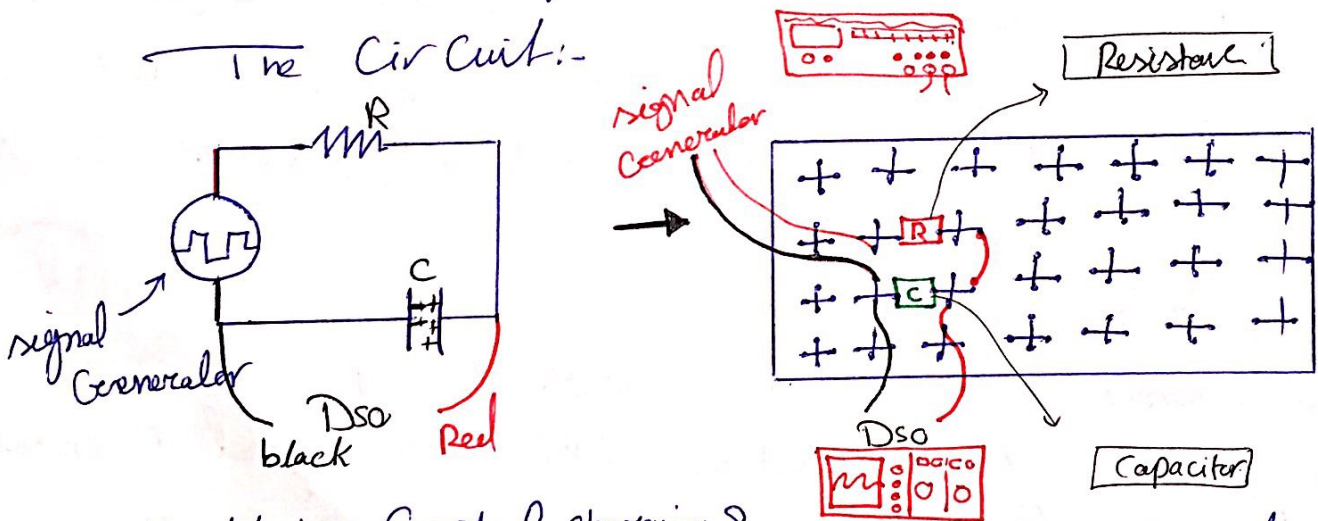 The CirCuit:-
R
signal
Generator
C
Dso
black
Red
signal
Generator
Resistance
R
C
Dso
Capacitor